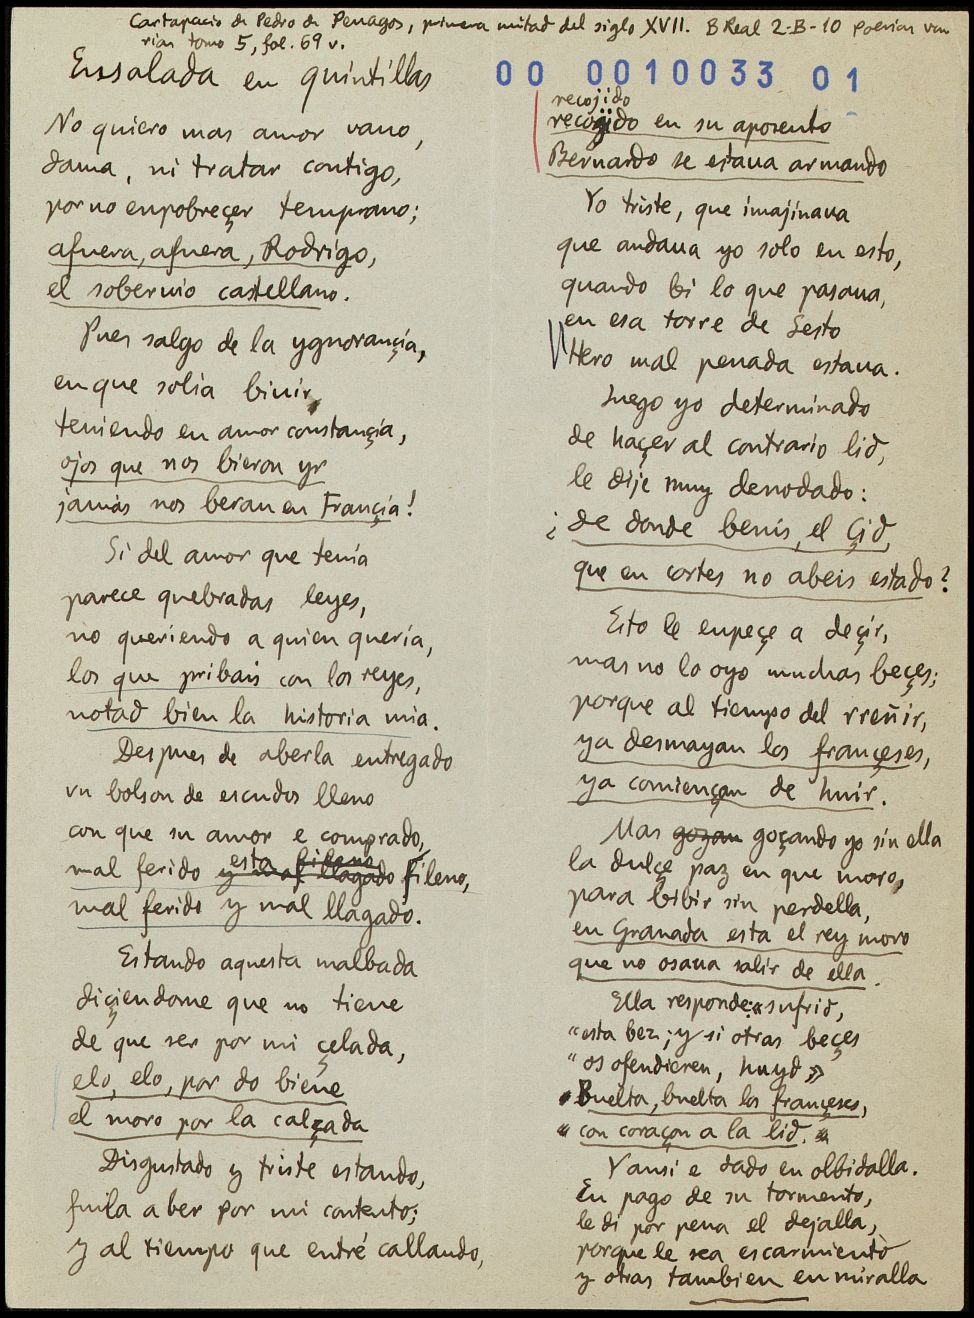 Cartapacio de Pedro de Penagos, primera mitad del siglo XVII. B Real 2-B-10 poesias va
rias tomo 5, fol. 69 v.
00 0010033 01
Enssalada en quintillas
No quiero mas amor vano,
dama, ni tratar contigo,
por no enpobreçer temprano;
afuera, afuera, Rodrigo,
el soberuio castellano.
Pues salgo de la ygnorançia,
en que solia biuir,
teniendo en amor constançia,
ojos que nos bieron yr
jamas nos beran en Françia!
Si del amor que tenia
parece quebradas leyes,
no queriendo a quien queria,
los que pribais con los reyes,
notad bien la historia mia.
Despues de aberla entregado
vn bolson de escudos lleno
con que su amor e comprado,
esta fileno
mal ferido y mal llagado fileno,
mal ferido y mal llagado.
Estando aquesta malbada
diçiendome que no tiene
de que ser por mi çelada,
elo, elo, por do biene
el moro por la calçada
Disgustado y triste estando,
fuila a ber por mi contento;
y al tiempo que entré callando,
recojido
recogido en su aposento
Bernardo se estaua armando
Yo triste, que imajinaua
que andaua yo solo en esto,
quando bi lo que pasaua,
en esa torre de Sesto
Hero mal penada estaua.
Luego yo determinado
de haçer al contrario lid,
le dije muy denodado:
¿de donde benis, el Çid,
que en cortes no abeis estado?
Esto le enpeçe a deçir,
mas no lo oyo muchas beçes;
porque al tiempo del rreñir,
ya desmayan los françeses,
ya comiençan de huir.
Mas gozan goçando yo sin ella
la dulçe paz en que moro,
para bibir sin perdella,
en Granada esta el rey moro
que no osaua salir de ella.
Ella responde: «sufrid,
"esta bez; y si otras beçes
"os ofendieren, huyd»
"Buelta, buelta los françeses,
"con coraçon a la lid."
Y ansi e dado en olbidalla.
En pago de su tormento,
le di por pena el dejalla,
porque le sea escarmiento
y otras tambien en miralla